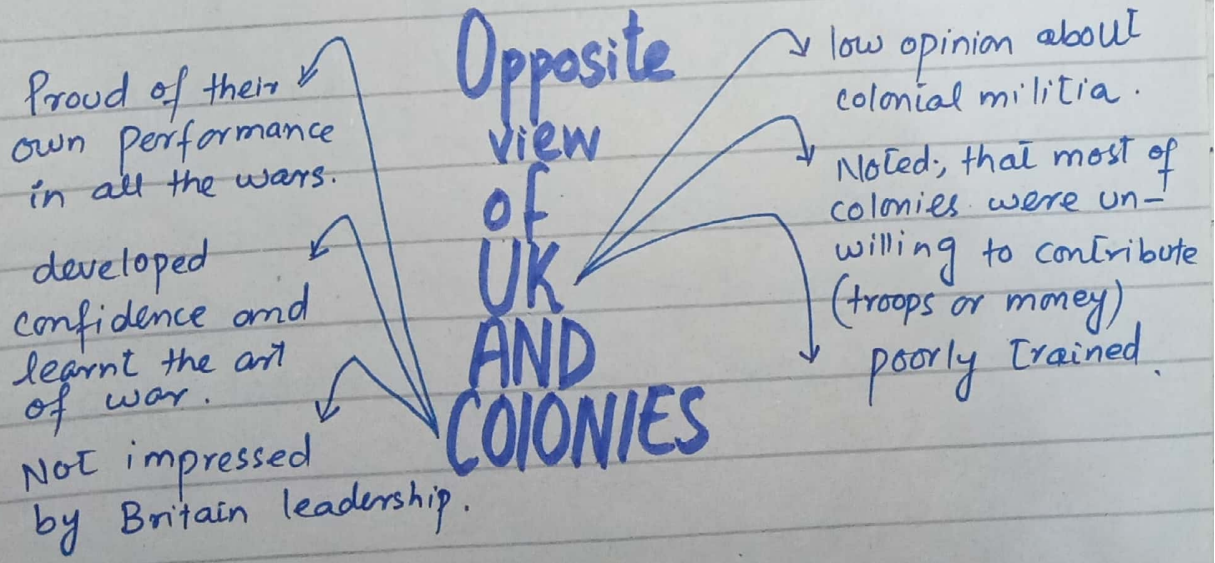 Opposite
view
of
UK
AND
COlONIES
Proud of their
own performance
in all the wars.
developed
confidence and
learnt the art
of war.
Not impressed
by Britain leadership.
low opinion about
colonial militia.
Noted; that most of
colonies were un-
willing to contribute
(troops or money)
poorly trained.